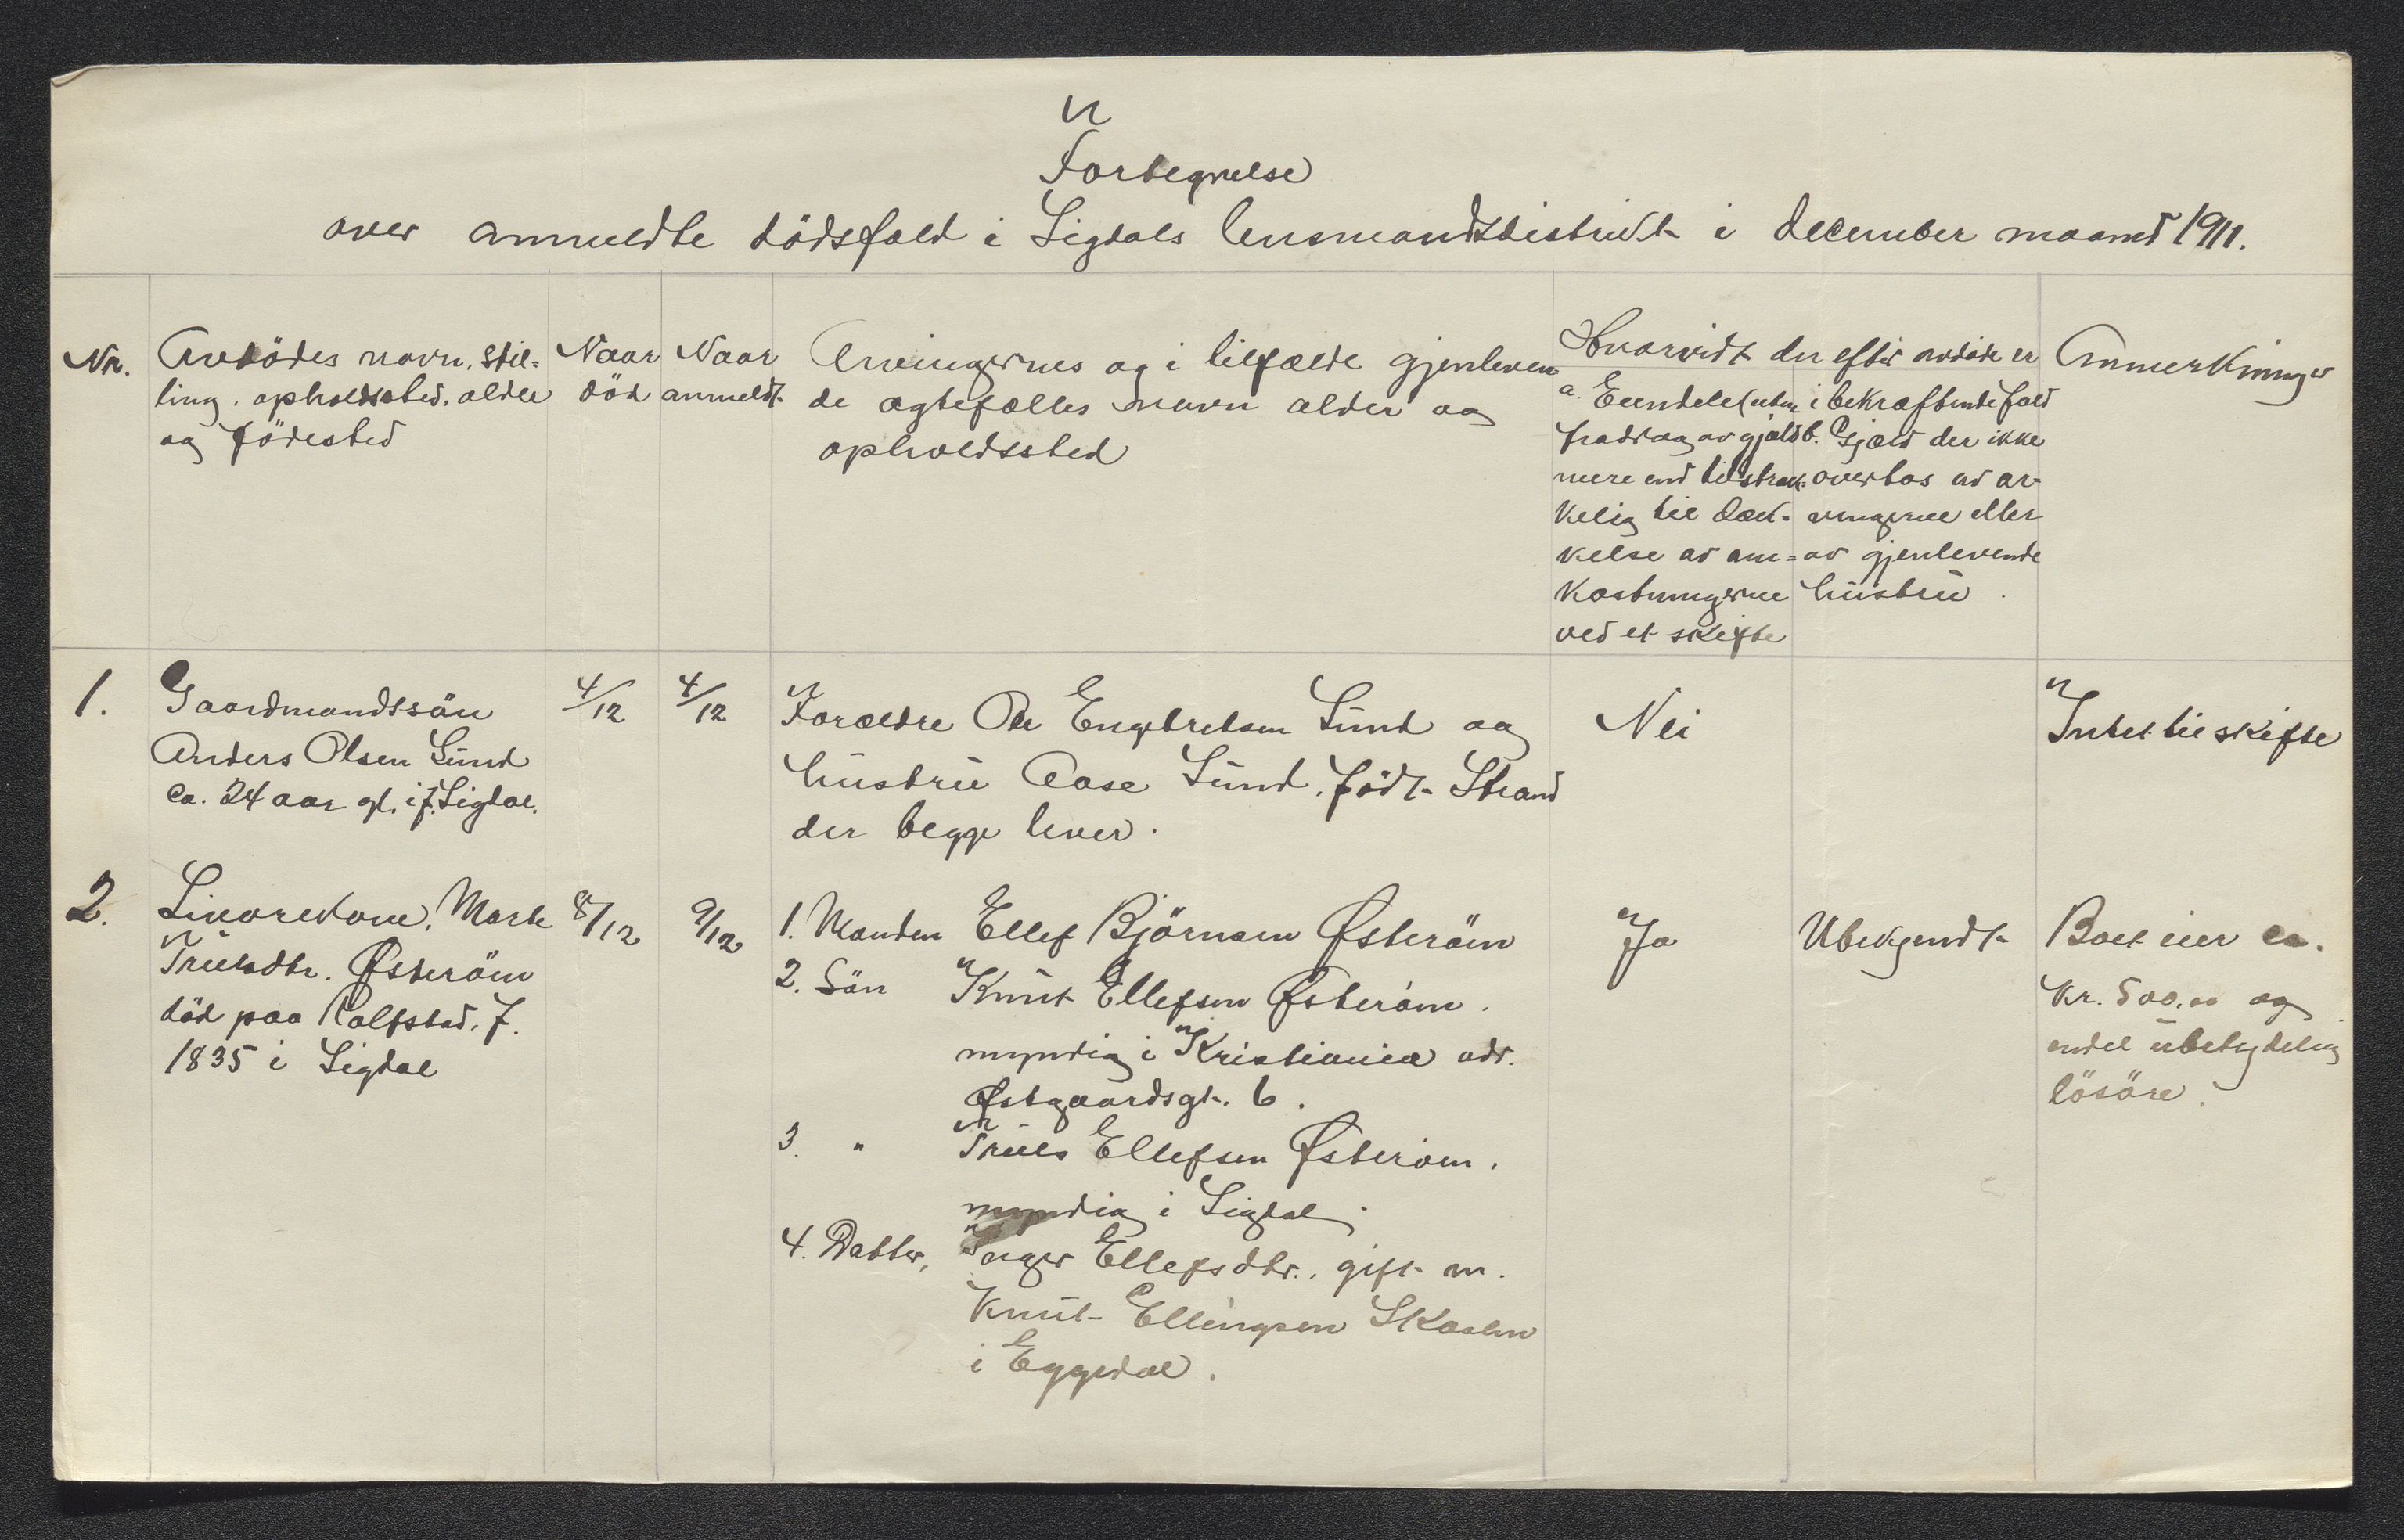 Fortegnelse
over anmeldte dödsfald i Sigdals lensmandsdistrikt i december maaned 1911.
Nr.
Avdödes navn, stil-
ling, opholdssted, alder
og födested
Naar
död
Naar
anmeldt
Arvingernes og i tilfælde gjenleven
de ægtefælles navn alder og
opholdssted
Hvorvidt der efter avdöde er
a. Eiendele (uten
fradrag av gjæld
mere end tilstræk-
kelig til dæk-
kelse av om-
kostningerne
ved et skifte
i bekræftende fald
b. Gjæld der ikke
overtas av ar-
vingerne eller
av gjenlevende
hustru.
Anmerkninger
1.
Gaardmandssön
Anders Olsen Lund
ca. 24 aar gl. i f. Sigdal.
4/12
4/12
Forældre Ole Engebretsen Lund og
hustru Aase Lund, födt Strand
der begge lever.
Nei
Intet til skifte
2.
Livörekone, Marte
Trulsdtr. Østeröm
död paa Kolfstad, f.
1835 i Sigdal
8/12
9/12
1. Manden Ellef Björnsen Østeröm
2. Sön Knut Ellefsen Østeröm.
myndig i Kristiania adr.
Østgaardsgt. 6.
3. " Truls Ellefsen Østeröm,
myndig i Sigdal.
4. Datter, Inger Ellefsdtr., gift m.
Knut Ellingsen Skaalen
i Eggedal.
Ja
Ubekjendt
Boet eier ca.
Kr. 500,00 og
endel ubetydelig
lösöre.